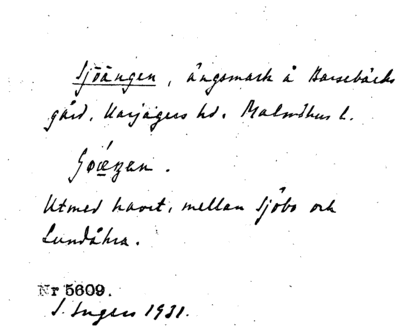 Sjöängen, ängsmark å Barsebäcks
gård, Harjagers hd. Malmöhus l.
Utmed havet, mellan Sjöbo och
Lundåkra.
Nr 5609.
S. Ingers 1931.